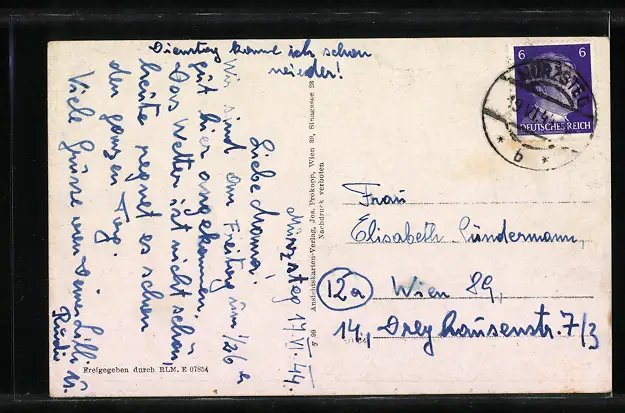 Dienstag komme ich schon
wieder!
Mürzzuschlag 17.VI.44.
Liebe Mama!
Wir sind am Freitag um 1/26 h
gut hier angekommen.
Das Wetter ist nicht schön,
heute regnet es schon
den ganzen Tag.
Viele Grüsse von Deiner Lilli u.
Rudi
Freigegeben durch RLM. E 07854
F 99 Ansichtskarten-Verlag, Jos. Prokopp, Wien 89, Sinagasse 28
Nachdruck verboten
6 6
DEUTSCHES REICH
* b *
Frau
Elisabeth Sündermann,
12a Wien 89,
14., Dreyhausenstr. 7/3